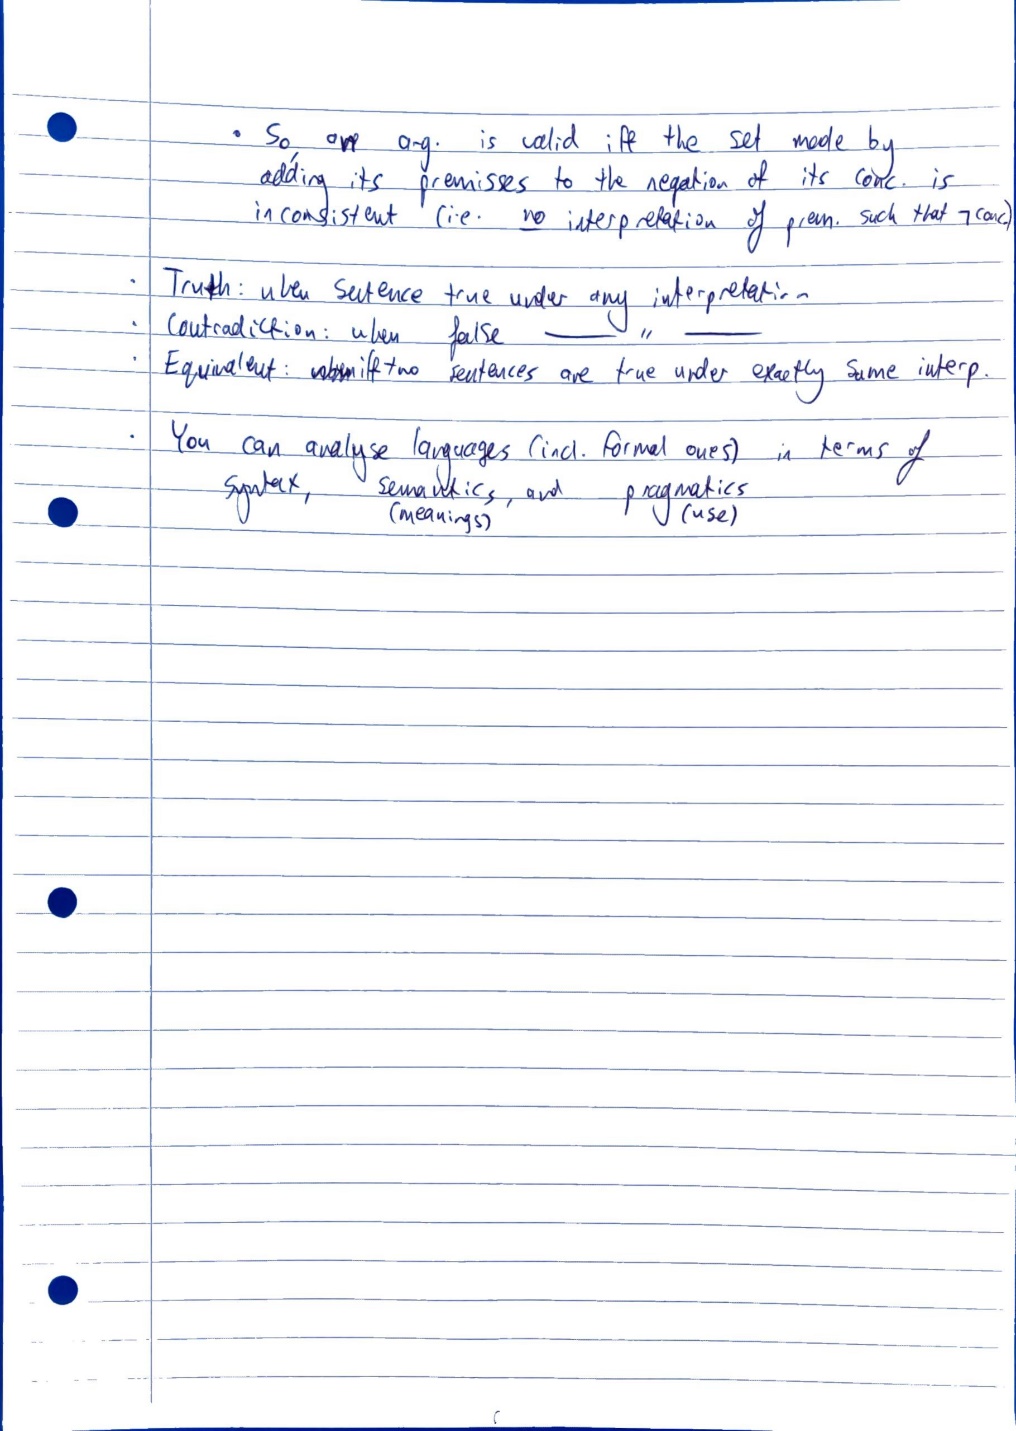 • So, an arg. is valid iff the set made by
adding its premisses to the negation of its conc. is
inconsistent (i.e. no interpretation of prem. such that ¬conc)
· Truth: when sentence true under any interpretation
· Contradiction: when false —— " ——
· Equivalent: iff two sentences are true under exactly same interp.
· You can analyse languages (incl. formal ones) in terms of
syntax, semantics, and pragmatics
(meanings) (use)